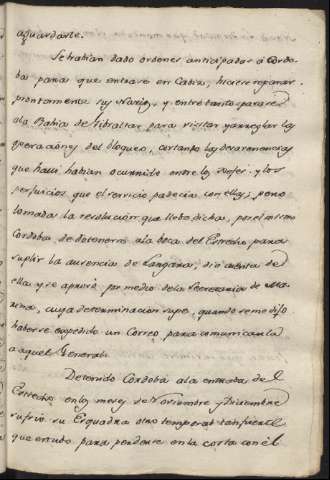 aguardarle.
Se habian dado ordenes anticipadas à Cordo-
ba: para que entrase en Cadiz, hiciese reparar
prontamente sus Navios, y entre tanto pasase
ala Bahia de Gibraltar para visitar y arreglar las
operaciones del bloqueo, cortando las desavenencias
que haui habian ocurrido entre los Gefes y los
perjuicios que el servicio padecia con ellas; pero
tomada la resolucion que llebo dicha, por el mismo
Cordoba de detenerse ala boca del Estrecho, para
suplir la ausencia de Langara, dió cuenta de
ella y se aprobó por medio de la Secretaria de Ma-
rina, cuya determinacion supe, quando se me dijo
haberse expedido un Correo para comunicarla
a aquel General.
Detenido Cordoba ala entrada del
Estrecho en los meses de Noviembre y Diciembre
sufrió su Esquadra otro temporal tan fuerte
que estubo para perderse en la costa con el